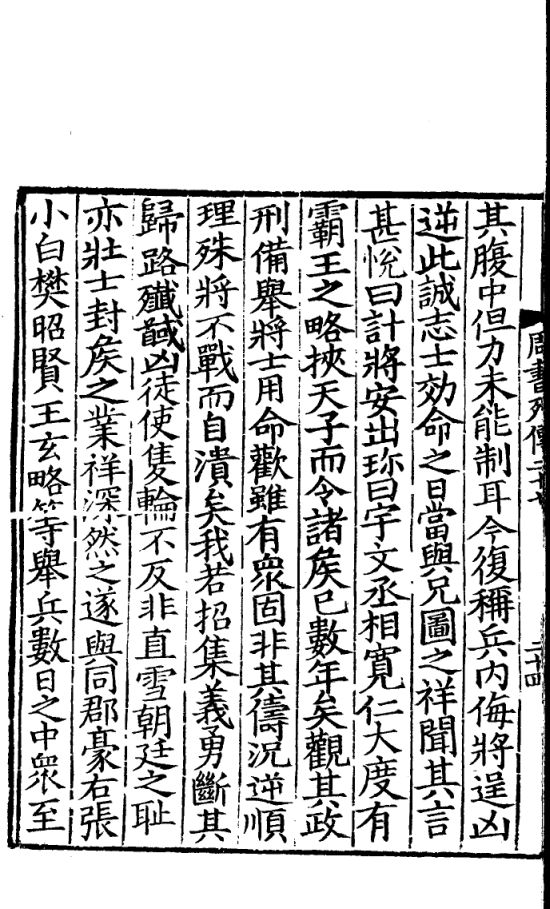 周書列傳二十七 二十四
其腹中但力未能制耳今復稱兵内侮將逞凶
逆此誠志士効命之日當與兄圖之祥聞其言
甚悅曰計將安出珎曰宇文丞相寛仁大度有
霸王之略挾天子而令諸矦已數年矣觀其政
刑備舉將士用命歡雖有衆固非其儔況逆順
理殊將不戰而自潰矣我若招集義勇斷其
歸路殲馘凶徒使隻輪不反非直雪朝廷之耻
亦壯士封矦之業祥深然之遂與同郡豪右張
小白樊昭賢王玄略等舉兵數日之中衆至